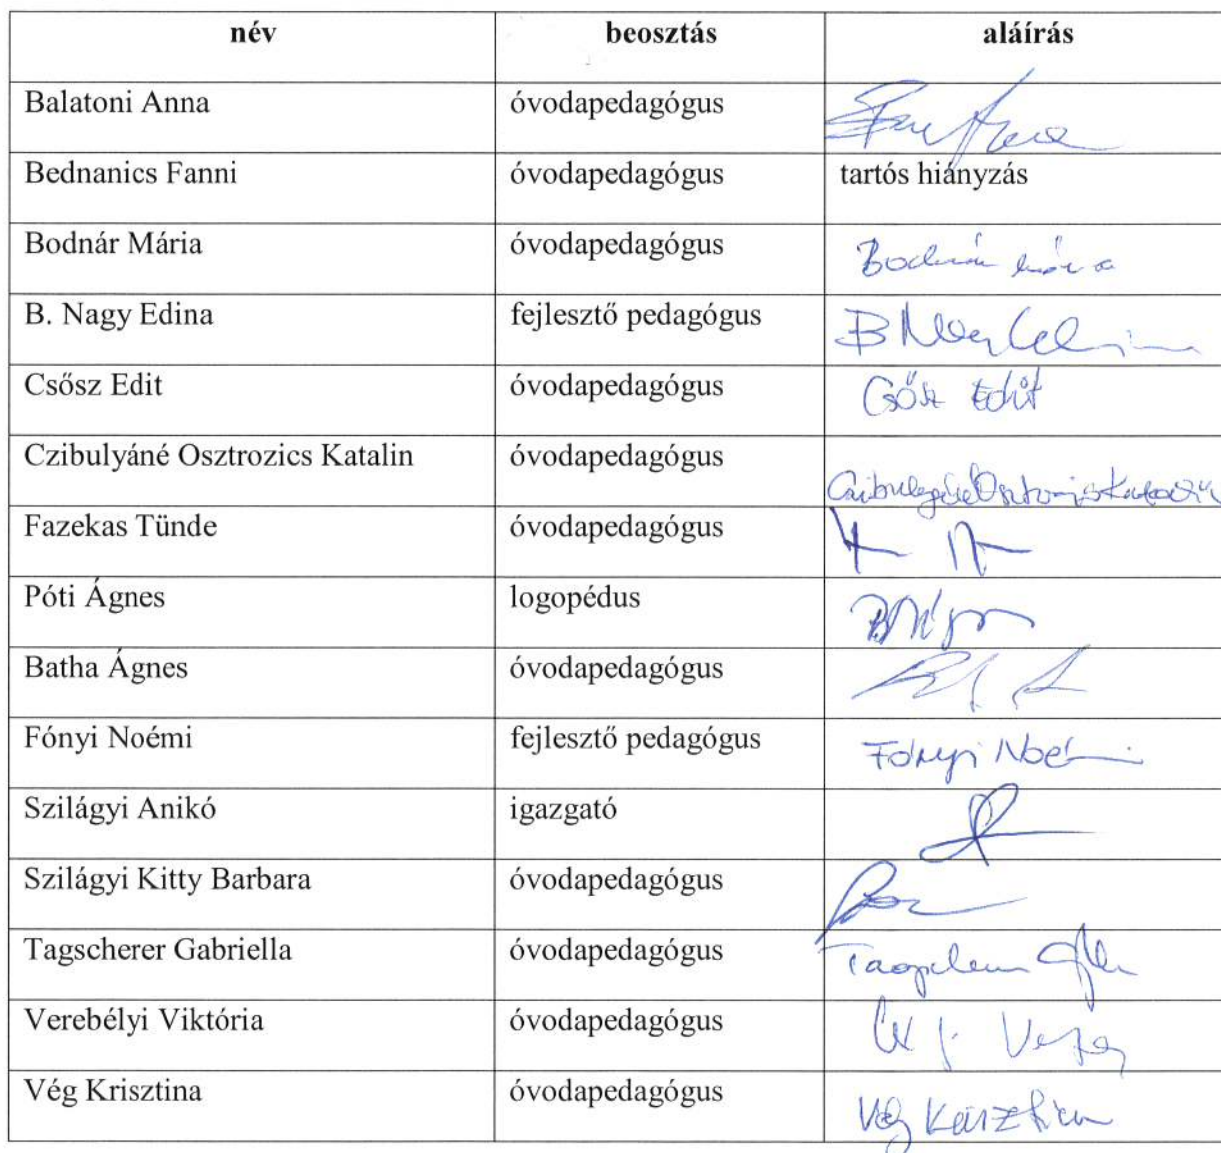 név beosztás aláírás
Balatoni Anna óvodapedagógus
Bednanics Fanni óvodapedagógus tartós hiányzás
Bodnár Mária óvodapedagógus Bodnár Mária
B. Nagy Edina fejlesztő pedagógus B Nagy Edina
Csősz Edit óvodapedagógus Csősz Edit
Czibulyáné Osztrozics Katalin óvodapedagógus Czibulyáné Osztrozics Katalin
Fazekas Tünde óvodapedagógus
Póti Ágnes logopédus
Batha Ágnes óvodapedagógus
Fónyi Noémi fejlesztő pedagógus Fónyi Noémi
Szilágyi Anikó igazgató
Szilágyi Kitty Barbara óvodapedagógus
Tagscherer Gabriella óvodapedagógus
Verebélyi Viktória óvodapedagógus
Vég Krisztina óvodapedagógus Vég Krisztina